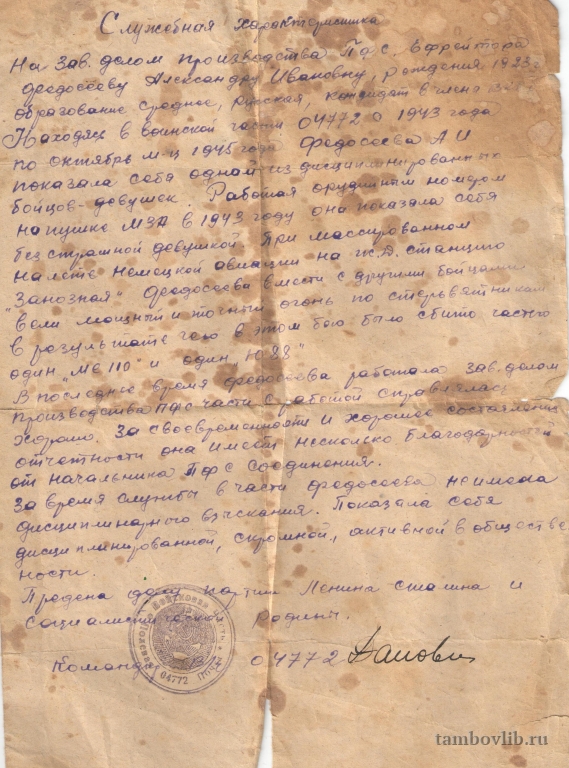 Служебная характеристика
На Зав. делом производства Пфс. Ефрейтора
Федосееву Александру Ивановну, рождения 1923г.
образование среднее, русская, кандидат в члены
Находясь в воинской части 04772 с 1943 года
по октябрь м-ц 1945 года Федосеева А И
показала себя одной из дисциплинированных
бойцов-девушек. Работая орудийным номером
на пушке МЗА в 1943 году она показала себя
бесстрашной девушкой. При массированном
налете немецкой авиации на ж.д. станцию
"Занозная" Федосеева вместе с другими бойцами
вели мощный и точный огонь по стервятникам
в результате чего в этом бою было сбито частью
один "МЕ 110" и один "Ю 88"
В последнее время Федосеева работала зав. делом
производства ПФС части с работой справлялась
хорошо. За своевременности и хорошее составление
отчетности она имеет несколько благодарностей
от начальника ПФС Соединения.
За время службы в части Федосеева не имела
дисциплинарного взыскания. Показала себя
дисциплинированной, скромной, активной в обществе
ности.
Предена делу партии Ленина Сталина и
социалистической Родины.
Командир 04772
04772
tambovlib.ru